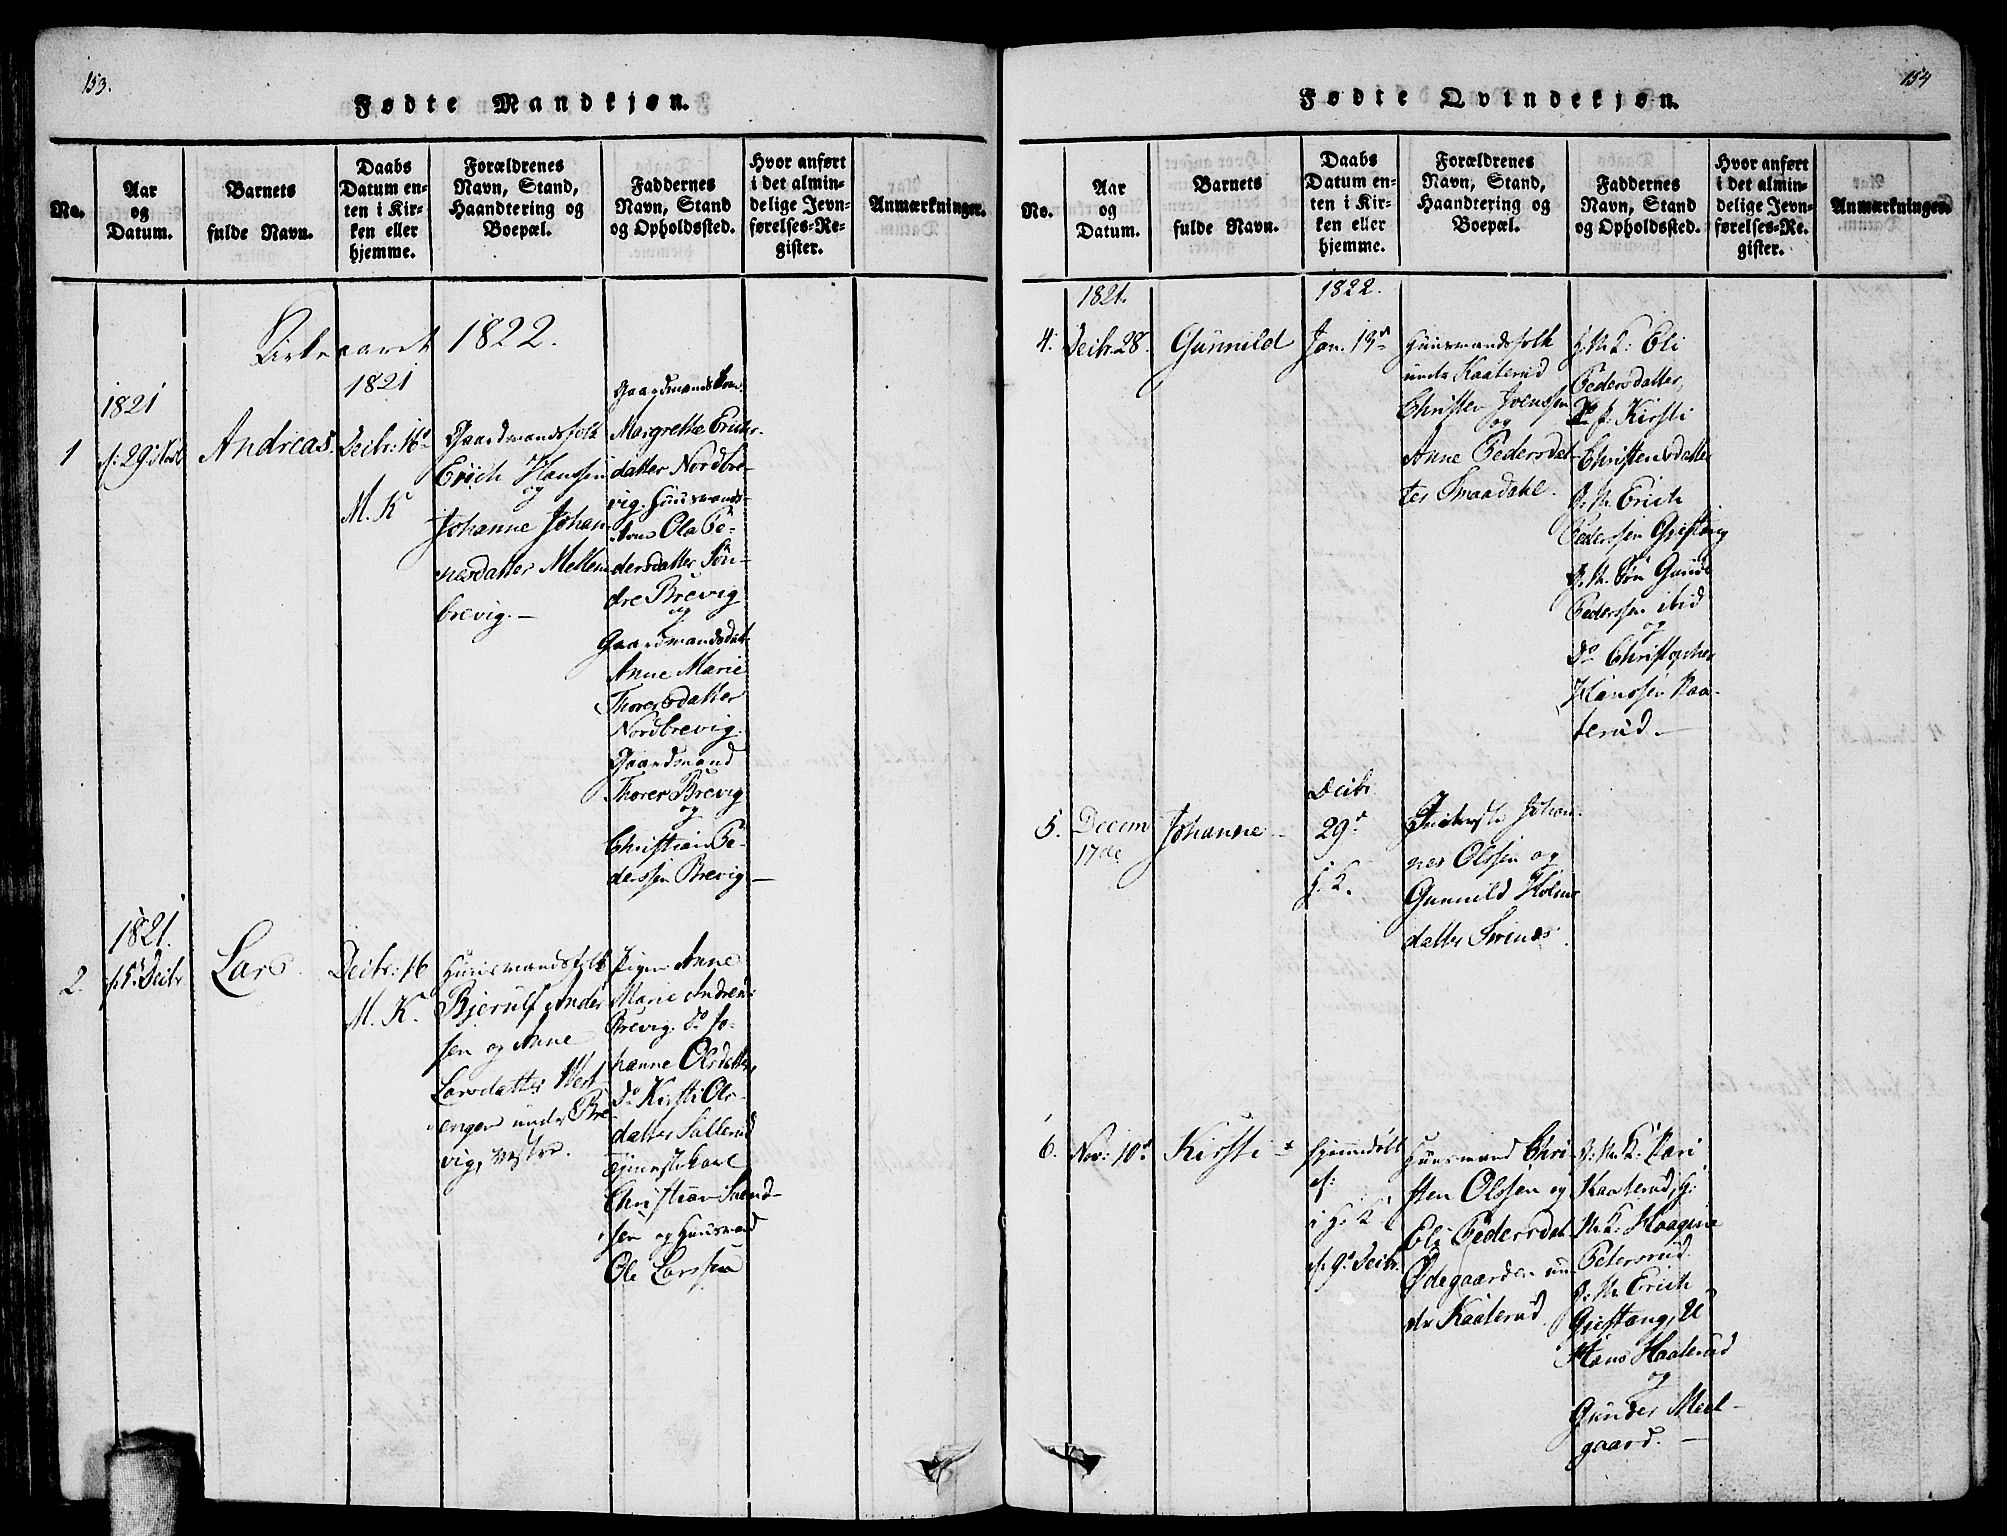 153.
Fødte Mandkjøn.
No.
Aar
og
Datum.
Barnets
fulde Navn.
Daabs
Datum en-
ten i Kir-
ken eller
hjemme.
Forældrenes
Navn, Stand,
Haandtering og
Boepæl.
Faddernes
Navn, Stand
og Opholdssted.
Hvor anført
i det almin-
delige Jevn-
førelses-Re-
gister.
Anmærkninger.
Kirkeaaret 1822.
1
1821
d: 29 Nov
Andreas.
1821
Decbr: 16d
M. K
Gaardmandsfolk
Erich Hanssen
og
Johanne Johan-
nesdatter Mellem
brevig. —
Gaardmandskone
Margrethe Erichs-
datter Nordbre-
vig. Huusmands-
kone Ola Pe-
dersdatter Søn-
dre Brevig
og
Gaardmandsdat-
Anne Marie
Thoresdatter
Nordbrevig.
Gaardmand
Thorer Brevig
og
Christian Pe-
derssen Brevig —
2.
1821.
d. 5t Decbr
Lars.
Decbr: 16
M. K.
Huusmandsfolk
Bjerulf Ander
sen og Anne
Larsdatter Vest
engen under Bre
vig, vestre.
Pigen Anne
Marie Andrens:
Brevig. do Jo-
hanne Olsdatter,
do Kirsti Ols-
datter Sallerud
Tjenestekarl
Christian Svend-
sen og Huusmand
Ole Larssen
154
Fødte Qvindekjøn.
No.
Aar
og
Datum.
Barnets
fulde Navn.
Daabs
Datum en-
ten i Kir-
ken eller
hjemme.
Forældrenes
Navn, Stand,
Haandtering og
Boepæl.
Faddernes
Navn, Stand
og Opholdssted.
Hvor anført
i det almin-
delige Jevn-
førelses-Re-
gister.
Anmærkninger.
4.
1821.
Decbr. 28.
Gunnild
1822.
Jan. 13de
Huusmandsfolk
under Kaaterud
Christen Svenssen
og
Anne Pedersdat-
ter Smaadahl.
G. M. K: Eli
Pedersdatter,
P. Kirsti
Christensdatter
G. M. Erich
Pederssen Gjestang
G. M. Søn Gunder
Pederssen ibid
og
do Christopher
Hanssen Kaa-
terud. —
5.
Decem
17de
Johanne —
Decbr
29d
H. K.
Inderste Johan-
nes Olssen og
Gunnild Holms
datter Sorknes.
6.
Nov: 10d
Kirsti —
Hjemdøbt
i H. K
d. 9. Decbr.
Huusmand Chri
sten Olssen og
Eli Pedersdat.
Ødegaarden un-
der Kaaterud.
G. M. K. Kari
Kaaterud, G.
M. K. Haagine
Petersrud.
G. M. Erich
Gjestang, U
Hans Kaaterud
og
Gunder Meel-
gaard. —